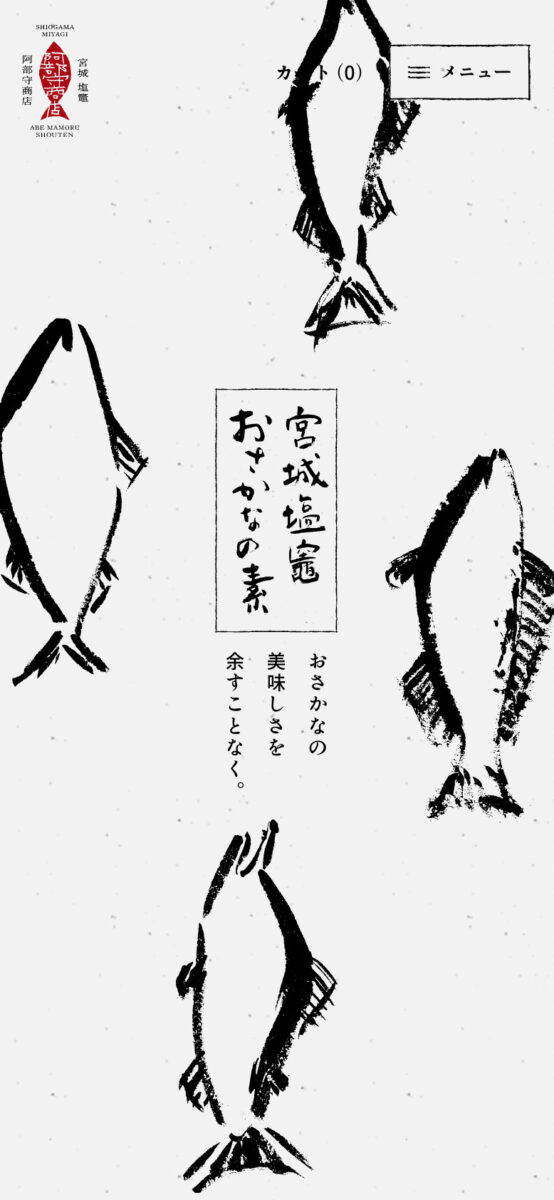 SHIOGAMA
MIYAGI
宮城 塩竈
阿部守商店
阿部守商店
ABE MAMORU
SHOUTEN
カート (0)
メニュー
宮城塩竈
おさかなの素
おさかなの
美味しさを
余すことなく。